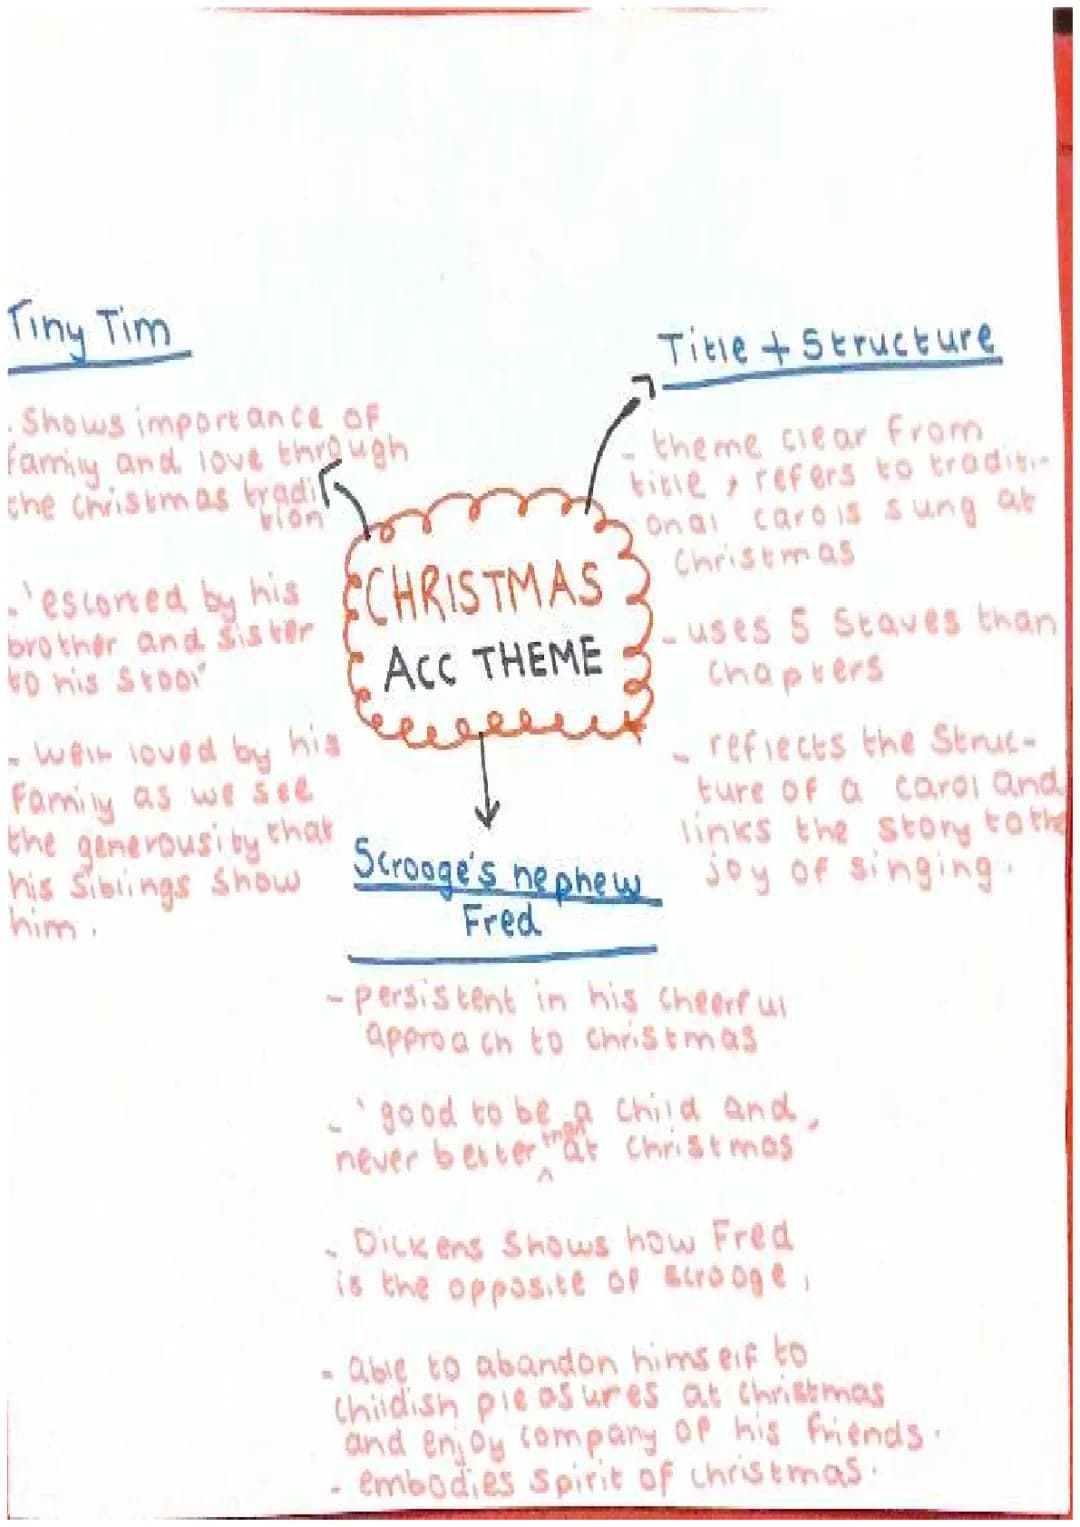 Tiny Tim
. Shows importance of
family and love through
the christmas tradi
tion
. 'escorted by his
brother and sister
to his stool"
- well loved by his
family as we see
the generousity that
his siblings show
him.
CHRISTMAS
ACC THEME
Title + Structure
- theme clear from
title, refers to traditi-
onal carols sung at
Christmas
- uses 5 Staves than
chapters
- reflects the Struc-
ture of a carol and
links the story to the
joy of singing.
Scrooge's nephew
Fred
- persistent in his cheerful
approach to christmas
- 'good to be a child and,
never better than at christmas
- Dickens shows how Fred
is the opposite of scrooge,
- able to abandon himself to
childish pleasures at christmas
and enjoy company of his friends.
- embodies spirit of christmas.